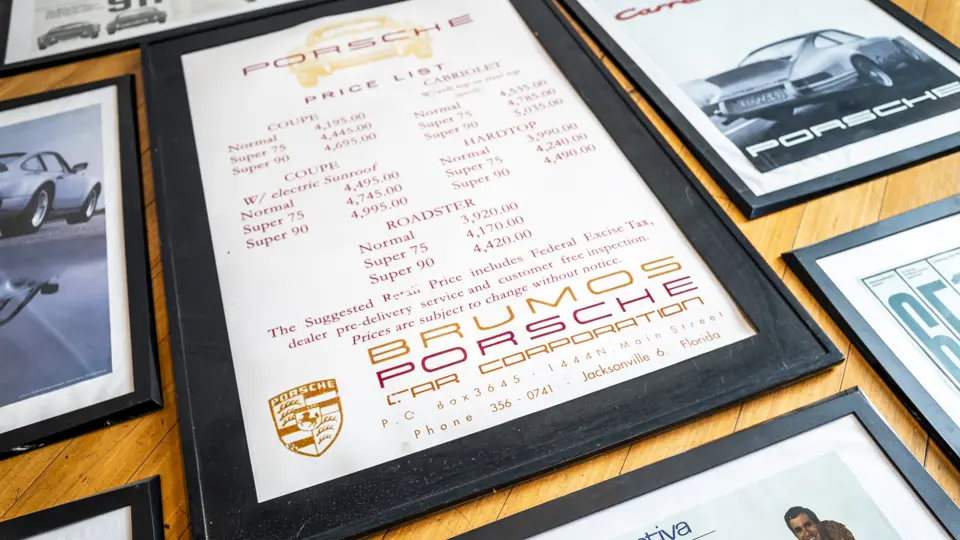 911
PORSCHE
PRICE LIST
COUPE
Normal 4,195.00
Super 75 4,445.00
Super 90 4,695.00
COUPE
W/ electric Sunroof
Normal 4,495.00
Super 75 4,745.00
Super 90 4,995.00
CABRIOLET
Normal 4,535.00
Super 75 4,785.00
Super 90 5,035.00
HARDTOP
Normal 3,990.00
Super 75 4,240.00
Super 90 4,490.00
ROADSTER
Normal 3,920.00
Super 75 4,170.00
Super 90 4,420.00
The Suggested Retail Price includes Federal Excise Tax,
dealer pre-delivery service and customer free inspection.
Prices are subject to change without notice.
BRUMOS
PORSCHE
CAR CORPORATION
P.O. Box 3645 · 1444 N. Main Street
Phone 356-0741 · Jacksonville 6, Florida
PORSCHE
PORSCHE